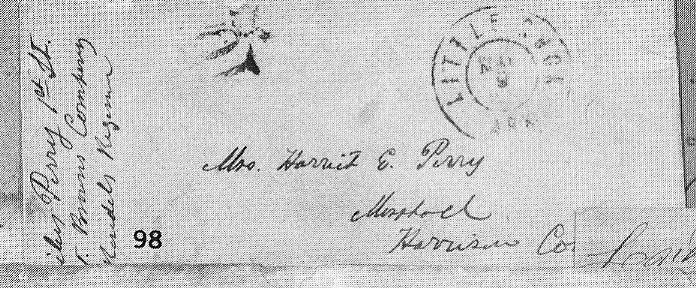 LITTLE ROCK
ARK
Perry 1st Lt.
Browns Company
Randels Regimen
Mrs. Harriet E. Perry
Marshall
Harrison Co
98